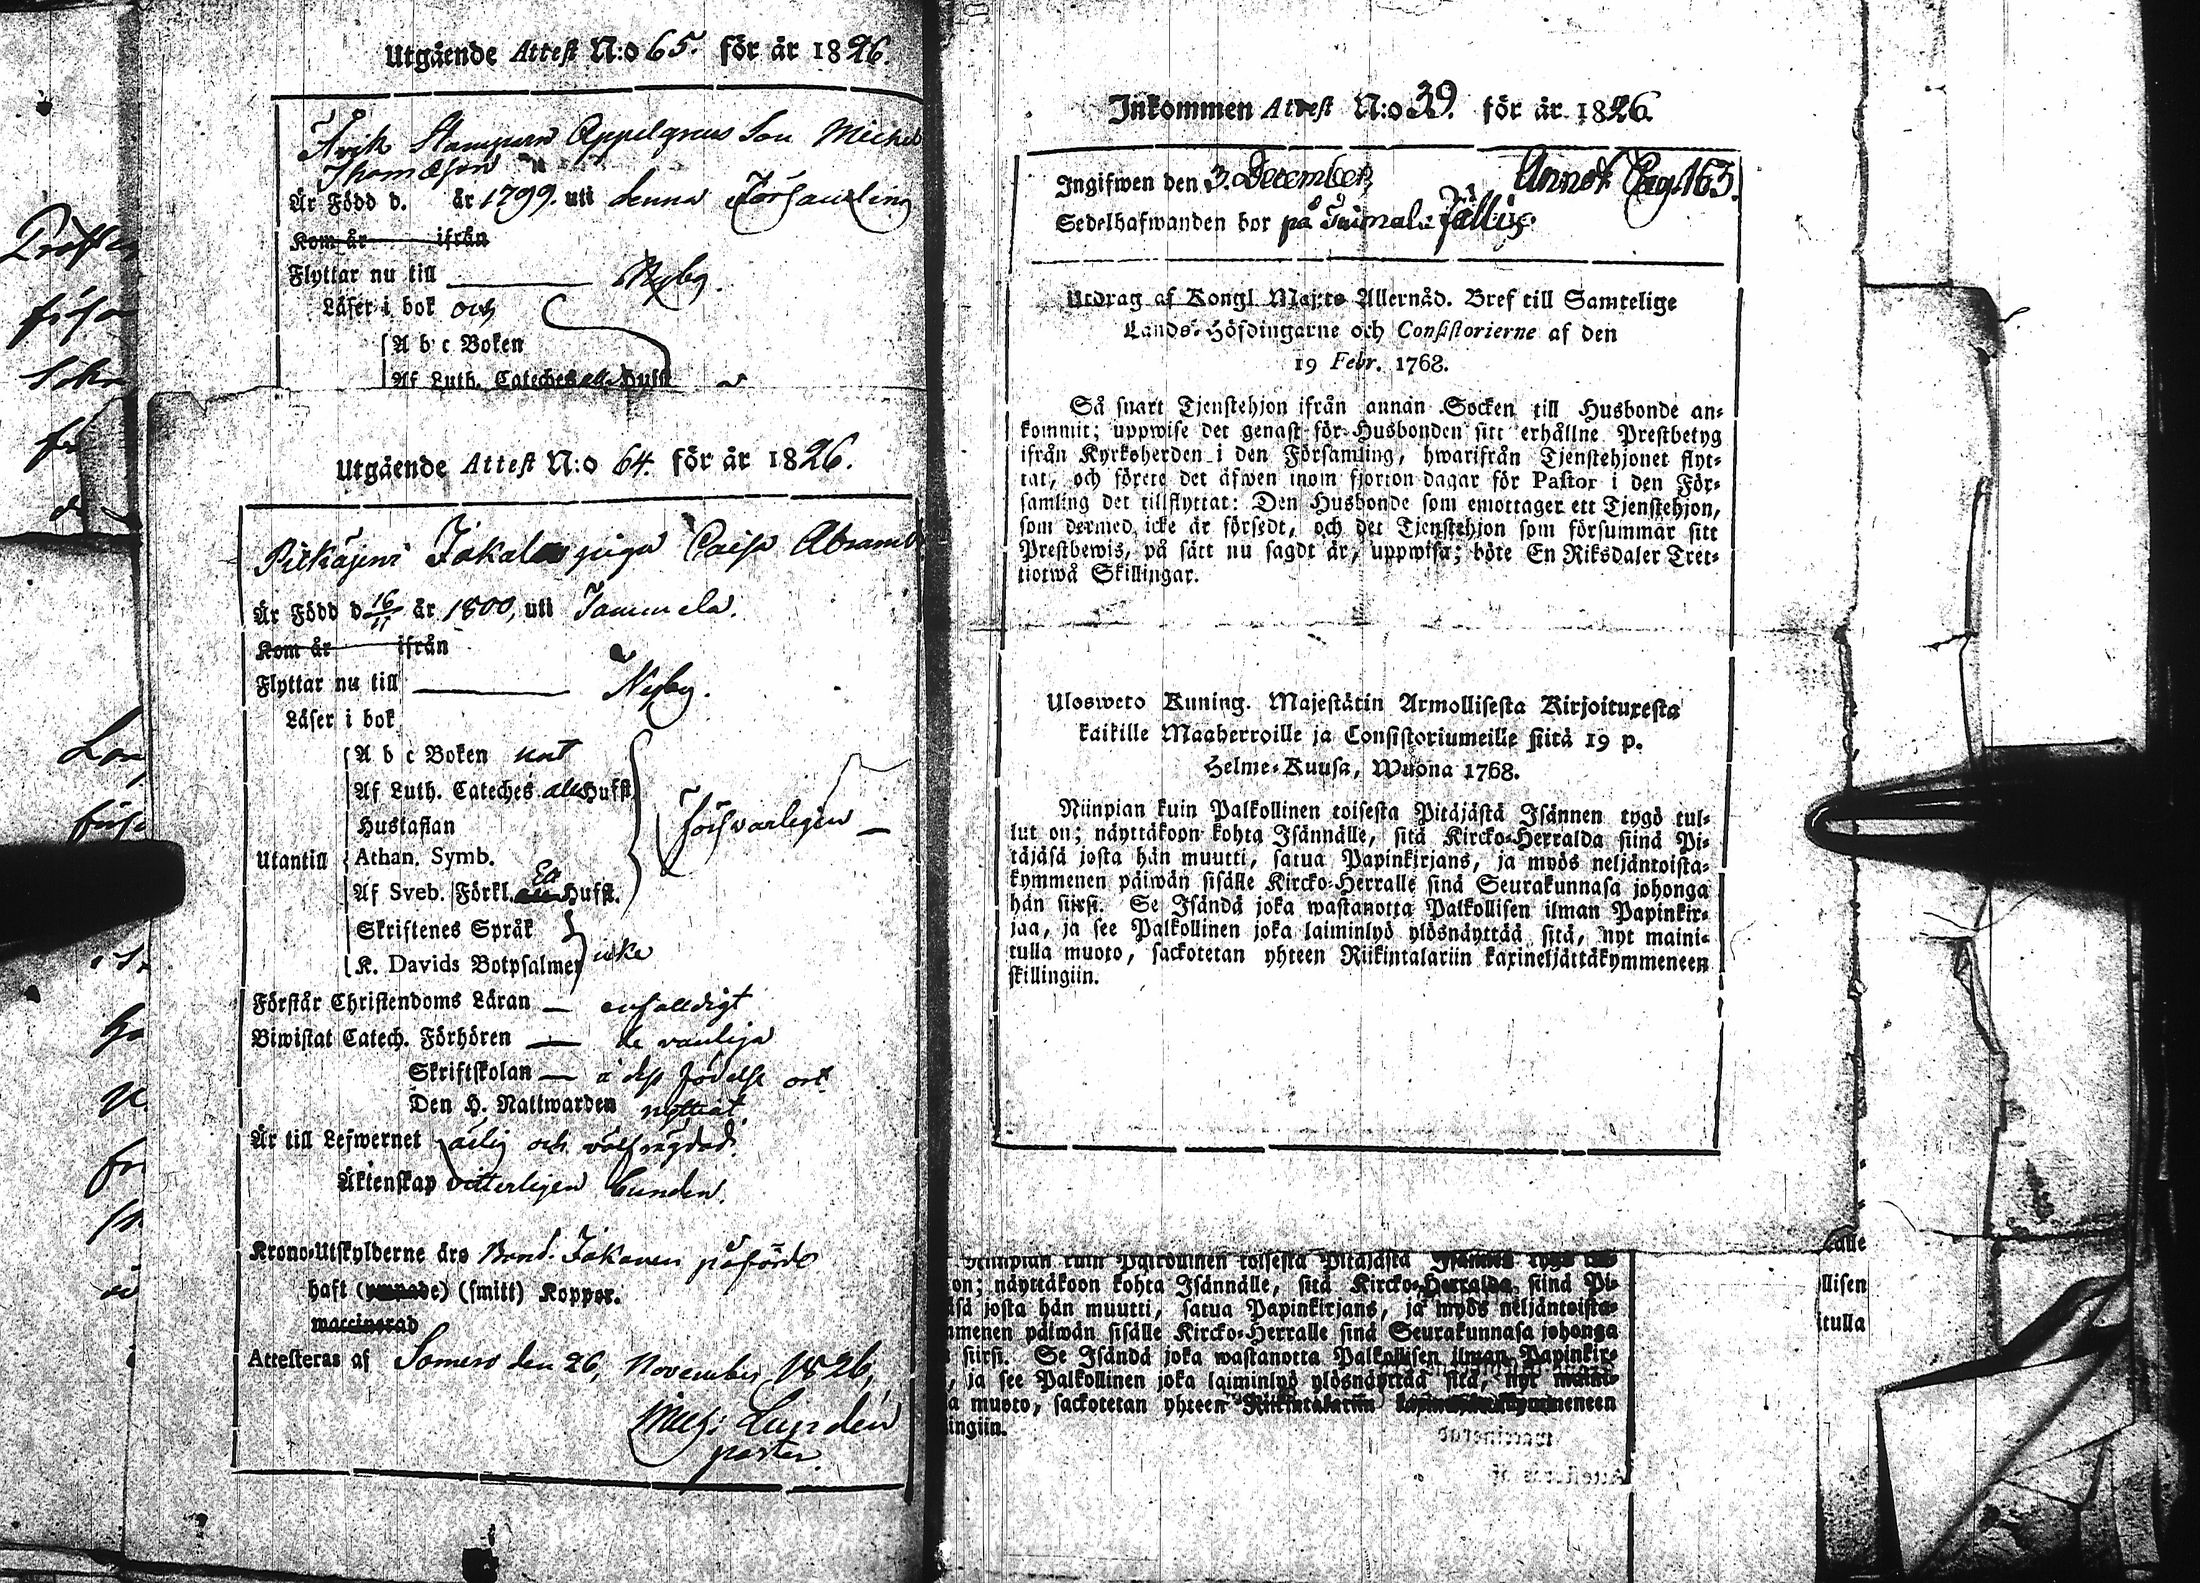 Utgående Attest N:o 65. för år 1826.
Michel
Thomasson
Är Född d. år 1799. uti denna Församling
Kom år ifrån
Flyttar nu till Nyby.
Läser i bok och
A b c Boken
Af Luth. Cateches alla Hufst
Utgående Attest N:o 64. för år 1826.
Pitkäjervi piga Caisa
Är Född d 16/11 år 1800, uti Tammela.
Kom år ifrån
Flyttar nu till Nyby.
Läser i bok
A b c Boken
Af Luth. Cateches alla Hufst.
Hustaflan
Utantill Athan. Symb.
Försvarligen
Af Sveb. Förkl. Hufst.
Skriftenes Språk
K. Davids Botpsalmer icke
Förstår Christendoms Läran — enfalldigt
Biwistat Catech. Förhören — de vanliga
Skriftskolan — i dess födelse ort
Den H. Nattwarden nyttiat
Är till Lefwernet ärlig och välfrägdad.
Äktenskap vitterligen bunden.
Krono-Utskylderne äro påförde
haft (ympade) (smitt) Koppor.
waccinerad
Attesteras af Somero den 26, November 1826,
Mich: Lundén
pastor.
Inkommen Attest N:o 39. för år 1826.
Ingifwen den 3. December Annot. Pag. 163.
Sedelhafwanden bor på
Utdrag af Kongl Maj:ts Allernåd. Bref till Samtelige
Lands-Höfdingarne och Consistorierne af den
19 Febr. 1768.
Så snart Tjenstehjon ifrån annan Socken till Husbonde an-
kommit; uppwise det genast för Husbonden sitt erhållne Prestbetyg
ifrån Kyrkoherden i den Församling, hwarifrån Tjenstehjonet flyt-
tat, och förete det äfwen inom fjorton dagar för Pastor i den För-
samling det tillflyttat: Den Husbonde som emottager ett Tjenstehjon,
som dermed icke är försedt, och det Tjenstehjon som försummar sitt
Prestbewis, på sätt nu sagdt är, uppwisa; böte En Riksdaler Tret-
tiotwå Skillingar.
Ulosweto Kuning. Majestätin Armollisesta Kirjoituxesta
kaikille Maaherroille ja Consistoriumeille siitä 19 p.
Helme-Kuusa, Wuona 1768.
Niinpian kuin Palkollinen toisesta Pitäjästä Isännen tygö tul-
lut on; näyttäkoon kohta Isännälle, sitä Kircko-Herralda siinä Pi-
täjäsä josta hän muutti, satua Papinkirjans, ja myös neljäntoista-
kymmenen päiwän sisälle Kircko-Herralle sinä Seurakunnasa johonga
hän siirsi. Se Isändä joka wastanotta Palkollisen ilman Papinkir-
jaa, ja see Palkollinen joka laiminlyö ylösnäyttää sitä, nyt maini-
tulla muoto, sackotetan yhteen Riikintalariin kaxineljättäkymmeneen
skillingiin.
Niinpian kuin Palkollinen toisesta Pitäjästä
on; näyttäkoon kohta Isännälle, sitä Kircko-Herralda, siinä Pi-
äsä josta hän muutti, satua Papinkirjans, ja myös neljäntoista-
mmenen päiwän sisälle Kircko-Herralle sinä Seurakunnasa johonga
siirsi. Se Isändä joka wastanotta Palkollisen ilman Papinkir-
, ja see Palkollinen joka laiminlyö ylösnäyttää sitä, nyt maini-
a muoto, sackotetan yhteen Riikintalariin
ingiin.
llisen
itulla